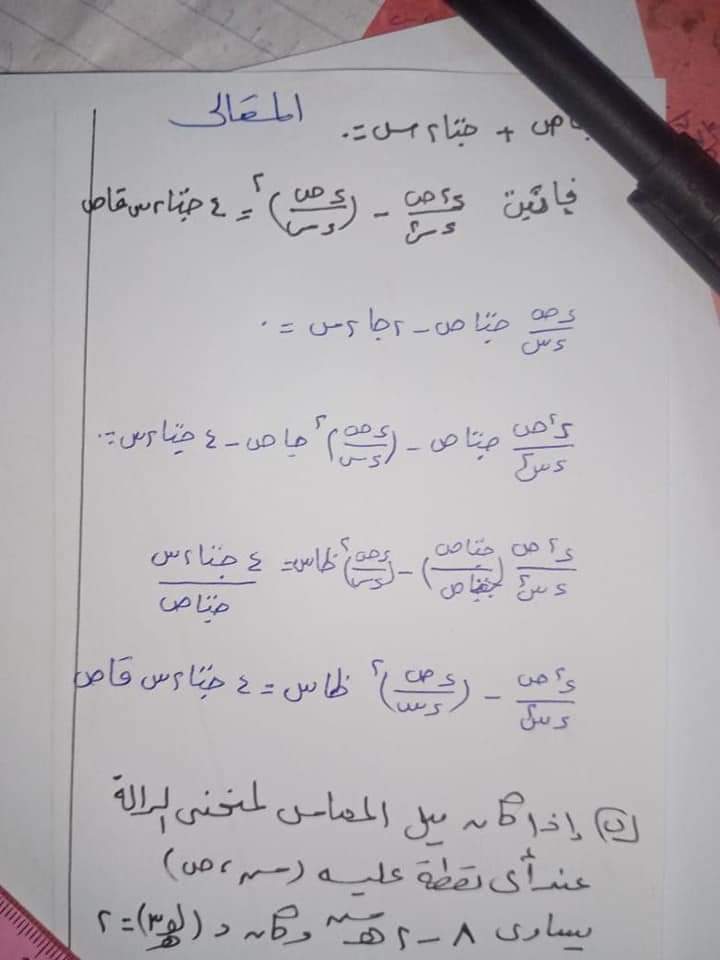 المقالى
جا ص + جتا ٢ س = ٠
فإثبت د٢ص/دس٢ - (دص/دس)٢ = ٤ جتا ٢ س قاص
دص/دس جتا ص - ٢ جا ٢ س = ٠
د٢ص/دس٢ جتا ص - (دص/دس)٢ جا ص - ٤ جتا ٢ س = ٠
د٢ص/دس٢ (جتاص/جتاص) - (دص/دس)٢ ظاس = ٤ جتا ٢ س/جتاص
د٢ص/دس٢ - (دص/دس)٢ ظاس = ٤ جتا ٢ س قاص
إذا كان ميل المماس لمنحنى الدالة
عند أى نقطة عليه (س ، ص)
يساوى ٨ - ٢ هـ^س وكان د (لو ٣) = ٢